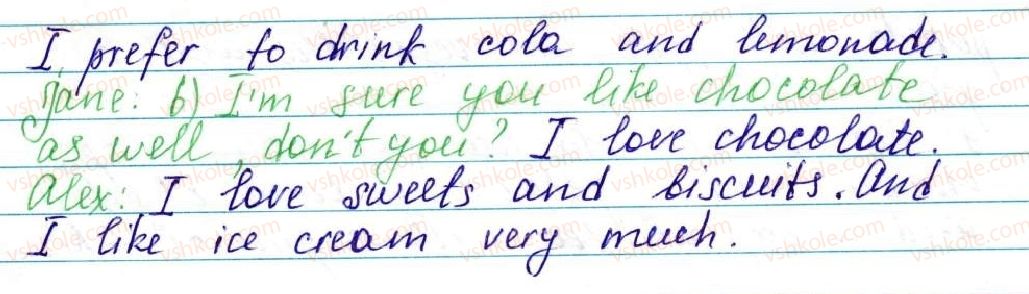 I prefer to drink cola and lemonade.
Jane: b) I'm sure you like chocolate
as well, don't you? I love chocolate.
Alex: I love sweets and biscuits. And
I like ice cream very much.